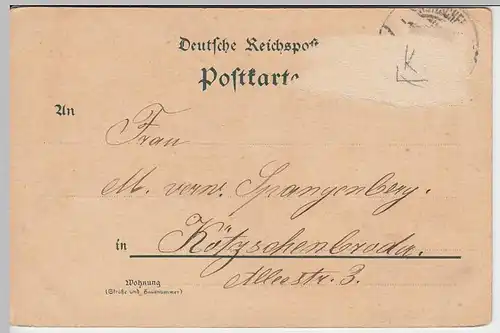 Deutsche Reichspost
Postkarte
K
An
Frau
M. verw. Spangenberg.
in Kötzschenbroda.
Alleestr. 3.
Wohnung
(Straße und Hausnummer)